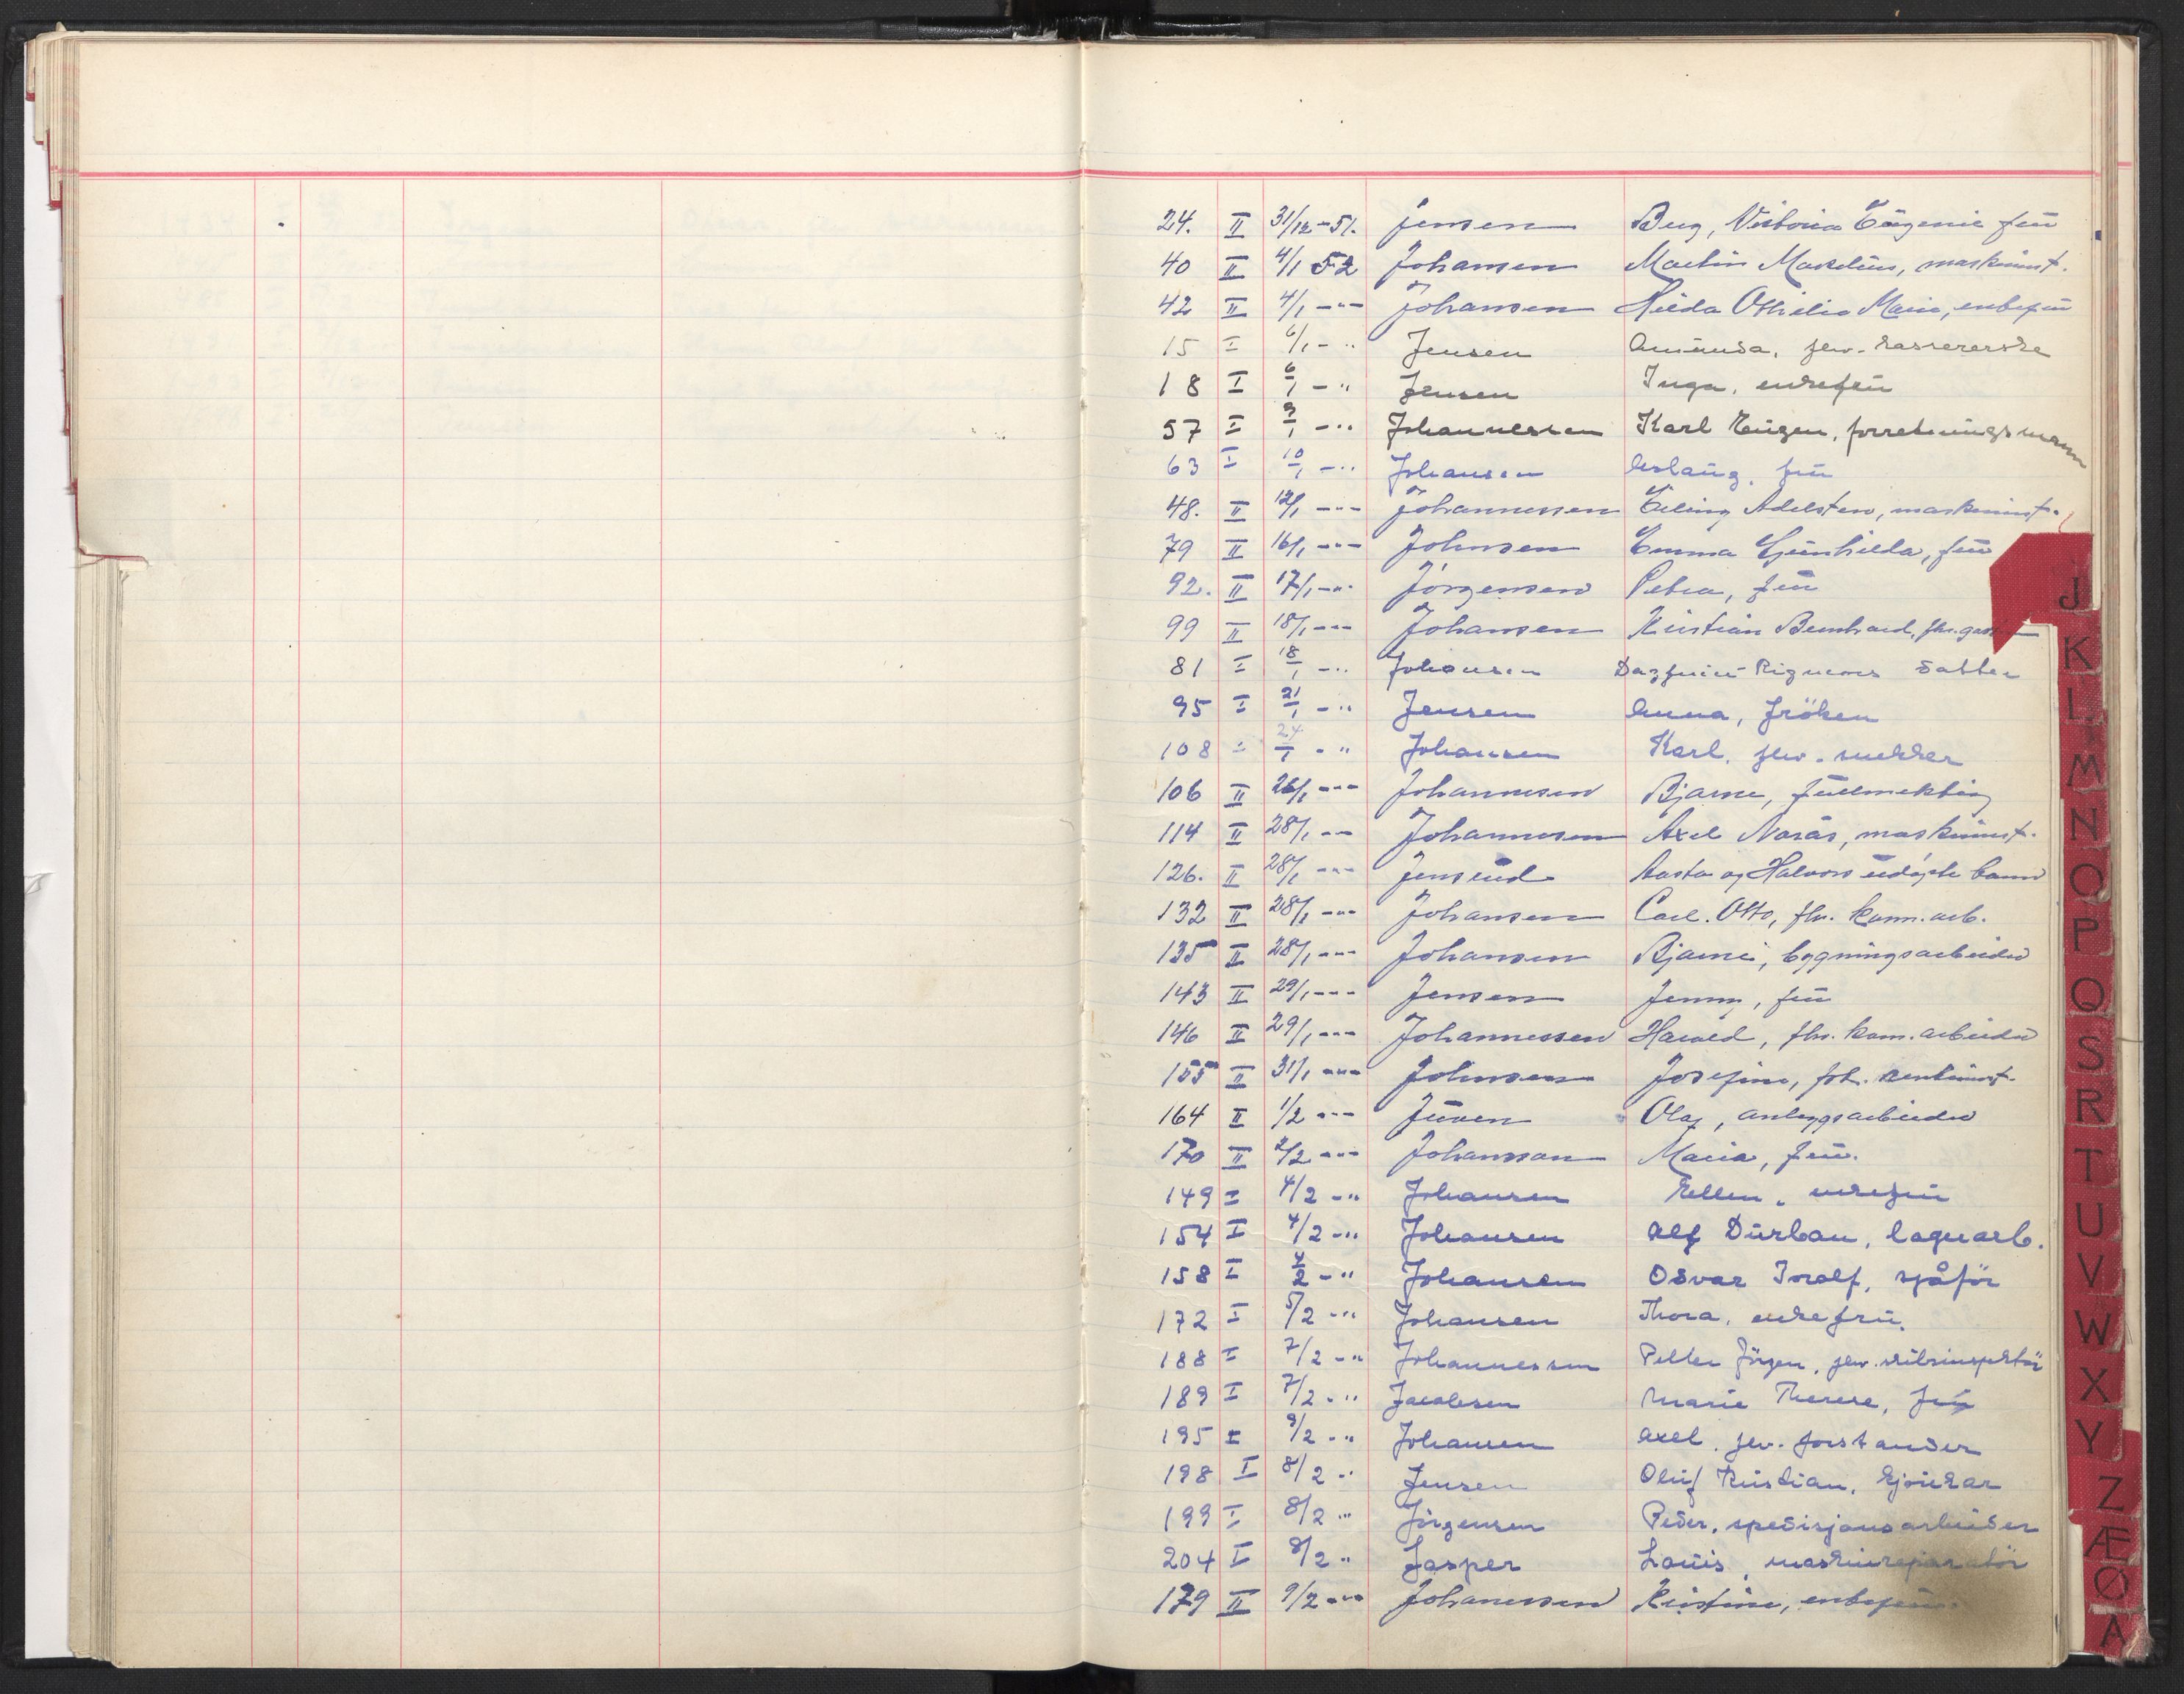 24. II 31/12-51. Jensen Berg, Viktoria Eugenie frü
40 II 4/1 52 Johansen Martin Markelius, maskinist.
42 II 4/1 -"- Johansen Hilda Othilie Marie, enkefrü
15 I 6/1 - " Jensen Amanda, fhv. kassererske
18 I 6/1 - " Jensen Inga, enkefrü
57 I 9/1 - " Johannessen Karl Eugen, forretningsmann
63 I 10/1 - " Johansen Aslaug, frü
48. II 12/1 -"- Johannessen Erling Adelsten, maskinist.
79 II 16/1 -"- Johnsen Emma Gunhilda, frü
92. II 17/1 -"- Jörgensen Petra, frü
99 II 18/1 -"- Johansen Kristian Bernhard, fhv.
81 I 18/1 - " Johansen Dagfinn Rigmors datter
95 I 21/1 - " Jensen Anna, fröken
108 I 24/1 - " Johansen Karl, fhv. vekker
106 II 26/1 -"- Johannesen Bjarne, fullmektig
114 II 28/1 -"- Johannesen Axel Narås, maskinist.
126. II 28/1 -"- Jensrud Aasta og Halvors udøpte barn
132 II 28/1 -"- Johansen Carl Otto, fhv. komm. arb.
135 II 28/1 -"- Johansen Bjarne, bygningsarbeider
143 II 29/1 -"- Jensen Jenny, frü
146 II 29/1 -"- Johannessen Harald, fhv. kom. arbeider
155 II 31/1 -"- Johnsen Josefine, frk. rentenist.
164 II 1/2 -"- Juven Olaf, anleggsarbeider
170 II 2/2 -"- Johansson Maria, frü.
149 I 4/2 - " Johansen Ellen, enkefrü
154 I 4/2 - " Johansen Alf Durban, lagerarb.
158 I 4/2 - " Johansen Osvar Inolf, sjåför
172 I 5/2 - " Johansen Thora, enkefrü.
188 I 7/2 - " Johannessen Petter Jörgen, fhv. skibsinspektör
189 I 7/2 - " Jacobsen Marie Therese, frü
195 I 9/2 - " Johansen Axel, fhv. forstander
198 I 8/2 - " Jensen Oluf Kristian, kjörekar
199 I 8/2 - " Jörgensen Peder, spedisjonsarbeider
204 I 8/2 " Jasper Louis, maskinreparatör
179 II 9/2 -"- Johannessen Kristine, enkefrü.
J
K
L
M
N
O
P
Q
S
R
T
U
V
W
X
Y
Z
Æ
Ø
A